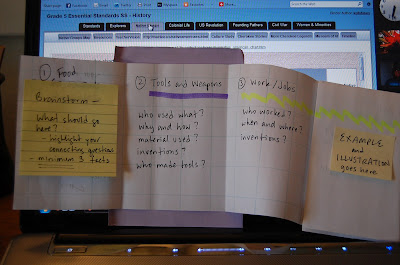 Grade 5 Essential Standards SS - History
Standards
Explorers
Colonial Life
US Revolution
Founding Fathers
Civil War
Women & Minorities
① Food
Brainstorm -
What should go
here?
- highlight your
connecting questions
- minimum 3 facts
② Tools and Weapons
who used what?
why and how?
material used?
inventions?
who made tools?
③ Work / Jobs
who worked?
when and where?
inventions?
EXAMPLE
and
ILLUSTRATION
goes here